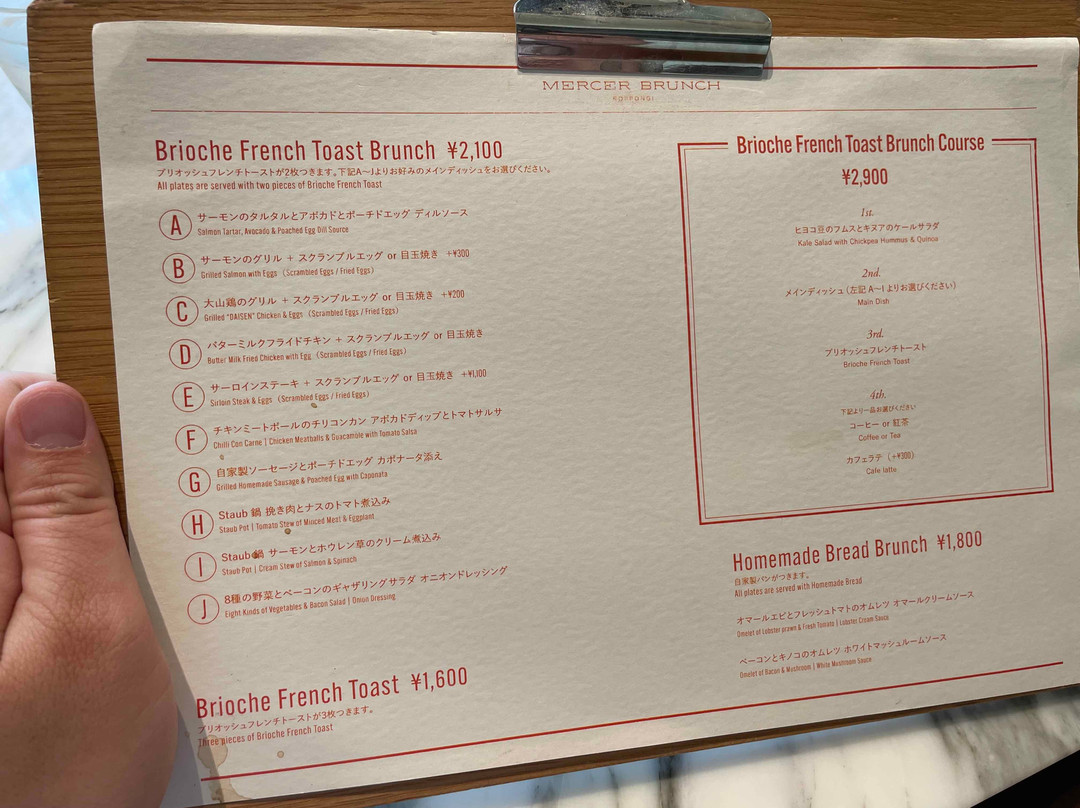 MERCER BRUNCH
ROPPONGI
Brioche French Toast Brunch ¥2,100
ブリオッシュフレンチトーストが2枚つきます。下記A〜Jよりお好みのメインディッシュをお選びください。
All plates are served with two pieces of Brioche French Toast
A サーモンのタルタルとアボカドとポーチドエッグ ディルソース
Salmon Tartar, Avocado & Poached Egg Dill Source
B サーモンのグリル + スクランブルエッグ or 目玉焼き +¥300
Grilled Salmon with Eggs (Scrambled Eggs / Fried Eggs)
C 大山鶏のグリル + スクランブルエッグ or 目玉焼き +¥200
Grilled "DAISEN" Chicken & Eggs (Scrambled Eggs / Fried Eggs)
D バターミルクフライドチキン + スクランブルエッグ or 目玉焼き
Butter Milk Fried Chicken with Egg (Scrambled Eggs / Fried Eggs)
E サーロインステーキ + スクランブルエッグ or 目玉焼き +¥1,100
Sirloin Steak & Eggs (Scrambled Eggs / Fried Eggs)
F チキンミートボールのチリコンカン アボカドディップとトマトサルサ
Chilli Con Carne | Chicken Meatballs & Guacamole with Tomato Salsa
G 自家製ソーセージとポーチドエッグ カポナータ添え
Grilled Homemade Sausage & Poached Egg with Caponata
H Staub 鍋 挽き肉とナスのトマト煮込み
Staub Pot | Tomato Stew of Minced Meat & Eggplant
I Staub 鍋 サーモンとホウレン草のクリーム煮込み
Staub Pot | Cream Stew of Salmon & Spinach
J 8種の野菜とベーコンのギャザリングサラダ オニオンドレッシング
Eight Kinds of Vegetables & Bacon Salad | Onion Dressing
Brioche French Toast ¥1,600
ブリオッシュフレンチトーストが3枚つきます。
Three pieces of Brioche French Toast
Brioche French Toast Brunch Course
¥2,900
1st.
ヒヨコ豆のフムスとキヌアのケールサラダ
Kale Salad with Chickpea Hummus & Quinoa
2nd.
メインディッシュ(左記 A〜I よりお選びください)
Main Dish
3rd.
ブリオッシュフレンチトースト
Brioche French Toast
4th.
下記より一品お選びください
コーヒー or 紅茶
Coffee or Tea
カフェラテ (+¥300)
Cafe latte
Homemade Bread Brunch ¥1,800
自家製パンがつきます。
All plates are served with Homemade Bread
オマールエビとフレッシュトマトのオムレツ オマールクリームソース
Omelet of Lobster prawn & Fresh Tomato | Lobster Cream Sauce
ベーコンとキノコのオムレツ ホワイトマッシュルームソース
Omelet of Bacon & Mushroom | White Mushroom Sauce